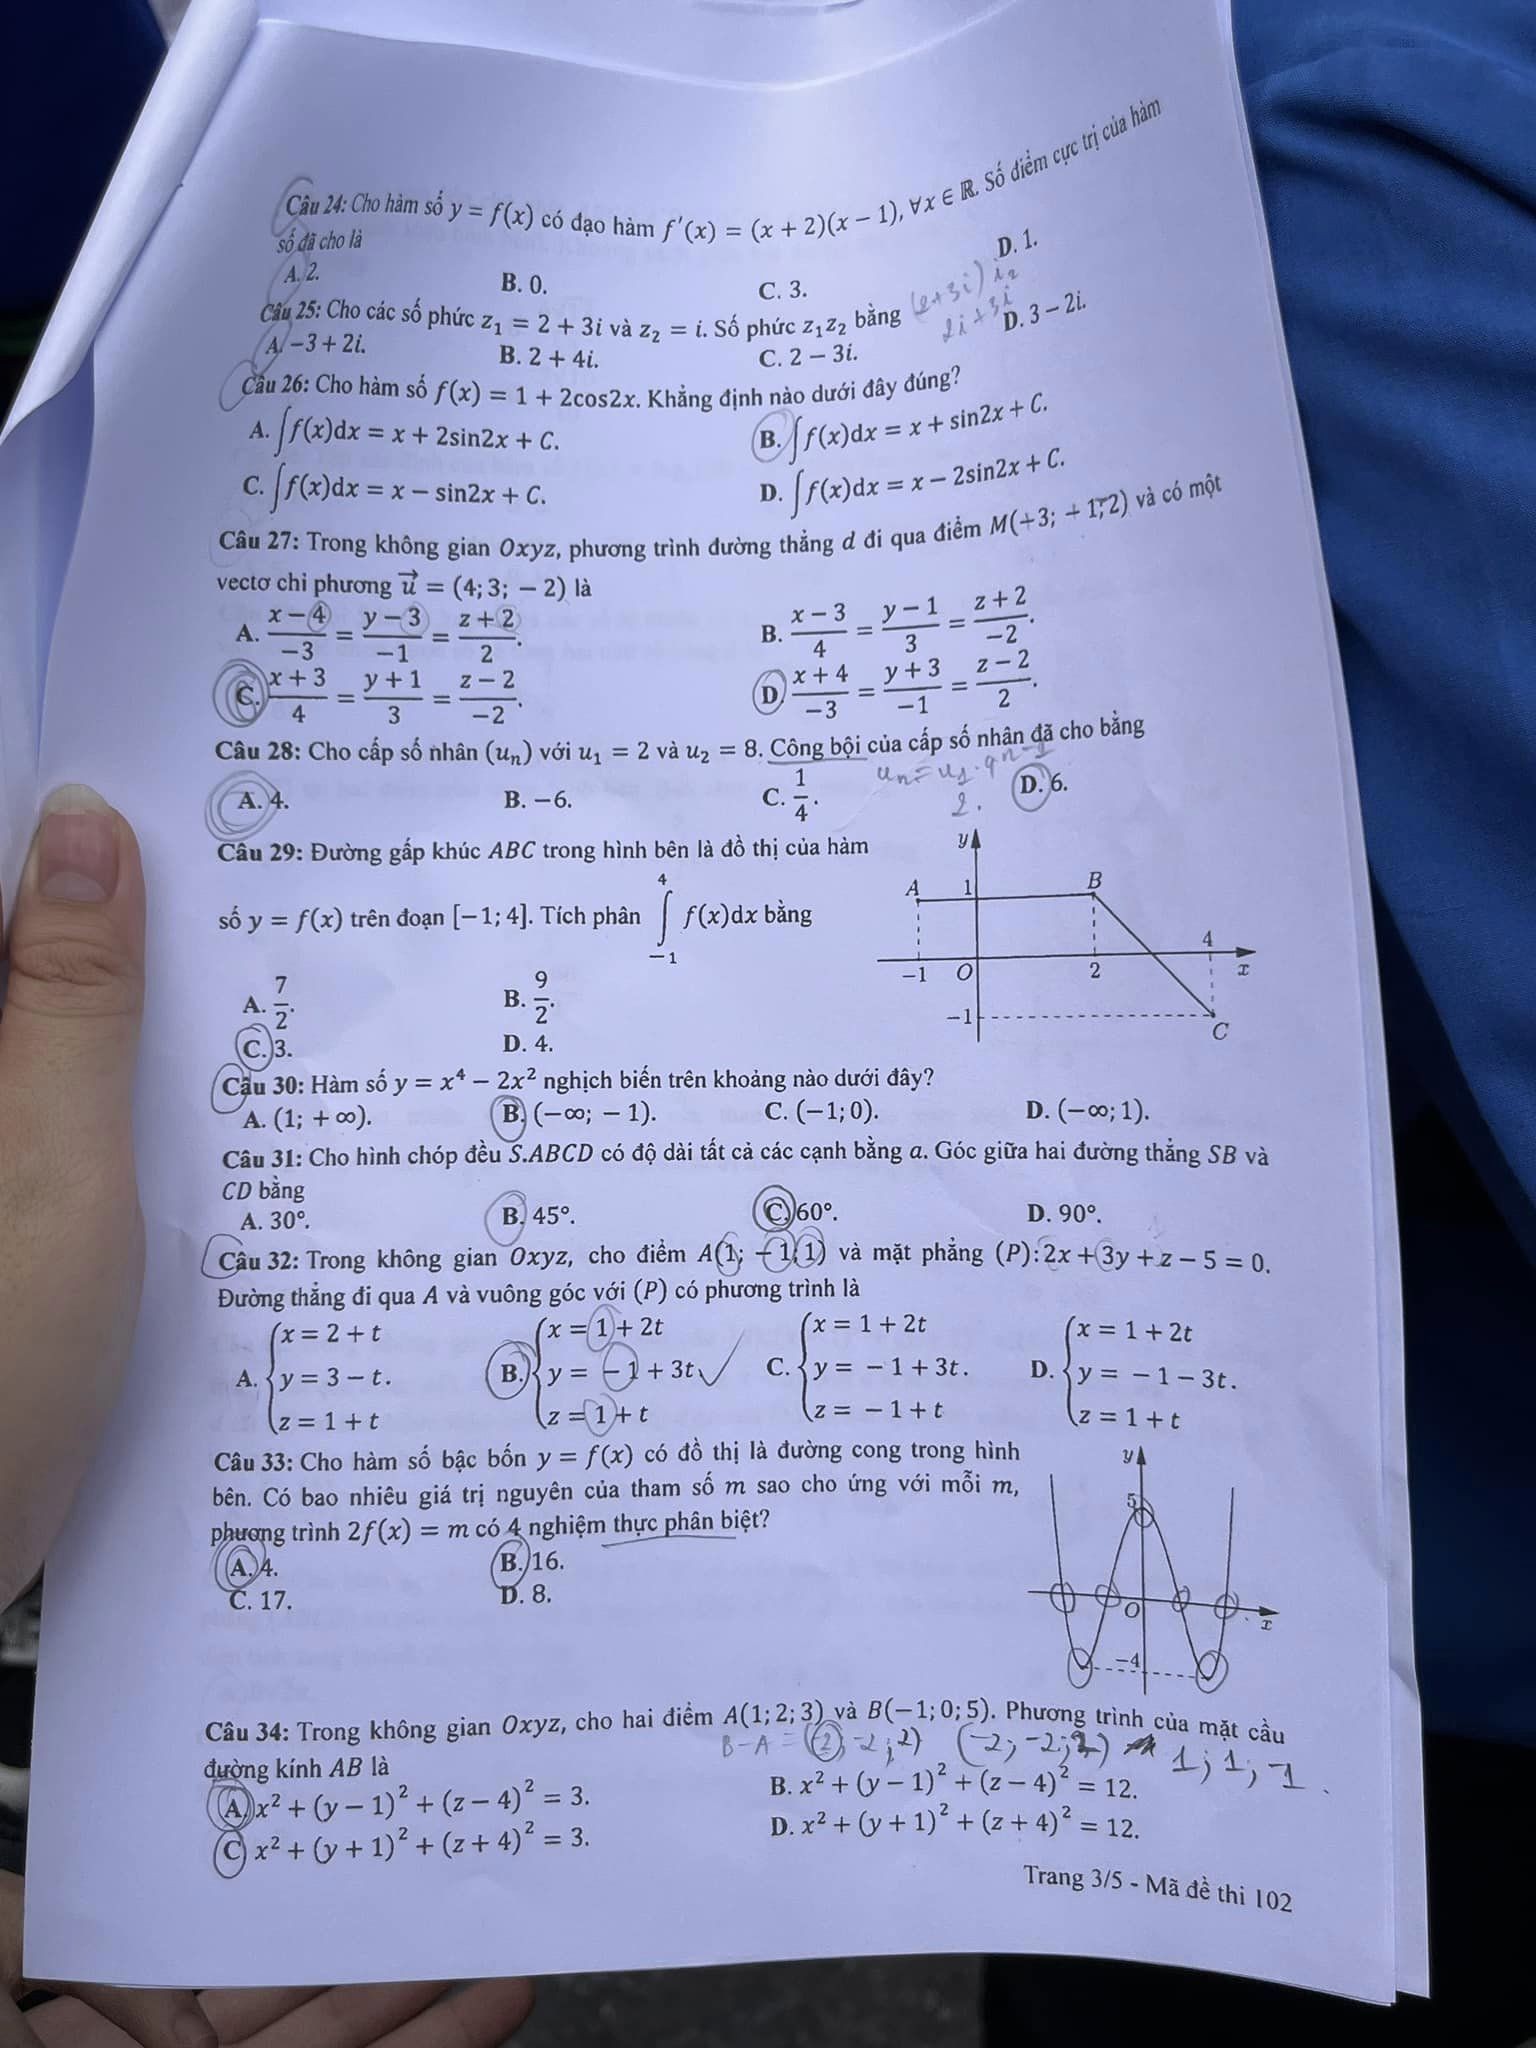 Câu 24: Cho hàm số y = f(x) có đạo hàm f'(x) = (x + 2)(x − 1), ∀x ∈ ℝ. Số điểm cực trị của hàm
số đã cho là
A. 2. B. 0. C. 3. D. 1.
Câu 25: Cho các số phức z₁ = 2 + 3i và z₂ = i. Số phức z₁z₂ bằng (2+3i) i
2i + 3i
A. −3 + 2i. B. 2 + 4i. C. 2 − 3i. D. 3 − 2i.
Câu 26: Cho hàm số f(x) = 1 + 2cos2x. Khẳng định nào dưới đây đúng?
A. ∫f(x)dx = x + 2sin2x + C. B. ∫f(x)dx = x + sin2x + C.
C. ∫f(x)dx = x − sin2x + C. D. ∫f(x)dx = x − 2sin2x + C.
Câu 27: Trong không gian Oxyz, phương trình đường thẳng d đi qua điểm M(−3; −1; 2) và có một
vectơ chỉ phương u⃗ = (4; 3; −2) là
A. (x − 4)/−3 = (y − 3)/−1 = (z + 2)/2. B. (x − 3)/4 = (y − 1)/3 = (z + 2)/−2.
C. (x + 3)/4 = (y + 1)/3 = (z − 2)/−2. D. (x + 4)/−3 = (y + 3)/−1 = (z − 2)/2.
Câu 28: Cho cấp số nhân (uₙ) với u₁ = 2 và u₂ = 8. Công bội của cấp số nhân đã cho bằng
uₙ = u₁ . qⁿ⁻¹
2.
A. 4. B. −6. C. 1/4. D. 6.
Câu 29: Đường gấp khúc ABC trong hình bên là đồ thị của hàm
số y = f(x) trên đoạn [−1; 4]. Tích phân ∫₋₁⁴ f(x)dx bằng
A. 7/2. B. 9/2.
C. 3. D. 4.
y
A 1 B
4
−1 O 2 x
−1 C
Câu 30: Hàm số y = x⁴ − 2x² nghịch biến trên khoảng nào dưới đây?
A. (1; +∞). B. (−∞; −1). C. (−1; 0). D. (−∞; 1).
Câu 31: Cho hình chóp đều S.ABCD có độ dài tất cả các cạnh bằng a. Góc giữa hai đường thẳng SB và
CD bằng
A. 30°. B. 45°. C. 60°. D. 90°.
Câu 32: Trong không gian Oxyz, cho điểm A(1; −1; 1) và mặt phẳng (P): 2x + 3y + z − 5 = 0.
Đường thẳng đi qua A và vuông góc với (P) có phương trình là
x = 2 + t x = 1 + 2t x = 1 + 2t x = 1 + 2t
A. { y = 3 − t. B. { y = −1 + 3t. C. { y = −1 + 3t. D. { y = −1 − 3t.
z = 1 + t z = 1 + t z = −1 + t z = 1 + t
Câu 33: Cho hàm số bậc bốn y = f(x) có đồ thị là đường cong trong hình
bên. Có bao nhiêu giá trị nguyên của tham số m sao cho ứng với mỗi m,
phương trình 2f(x) = m có 4 nghiệm thực phân biệt?
A. 4. B. 16.
C. 17. D. 8.
y
5
O x
−4
Câu 34: Trong không gian Oxyz, cho hai điểm A(1; 2; 3) và B(−1; 0; 5). Phương trình của mặt cầu
B−A = (−2; −2; 2) (−2; −2; 2) 1; 1; −1
đường kính AB là
A. x² + (y − 1)² + (z − 4)² = 3. B. x² + (y − 1)² + (z − 4)² = 12.
C. x² + (y + 1)² + (z + 4)² = 3. D. x² + (y + 1)² + (z + 4)² = 12.
Trang 3/5 - Mã đề thi 102